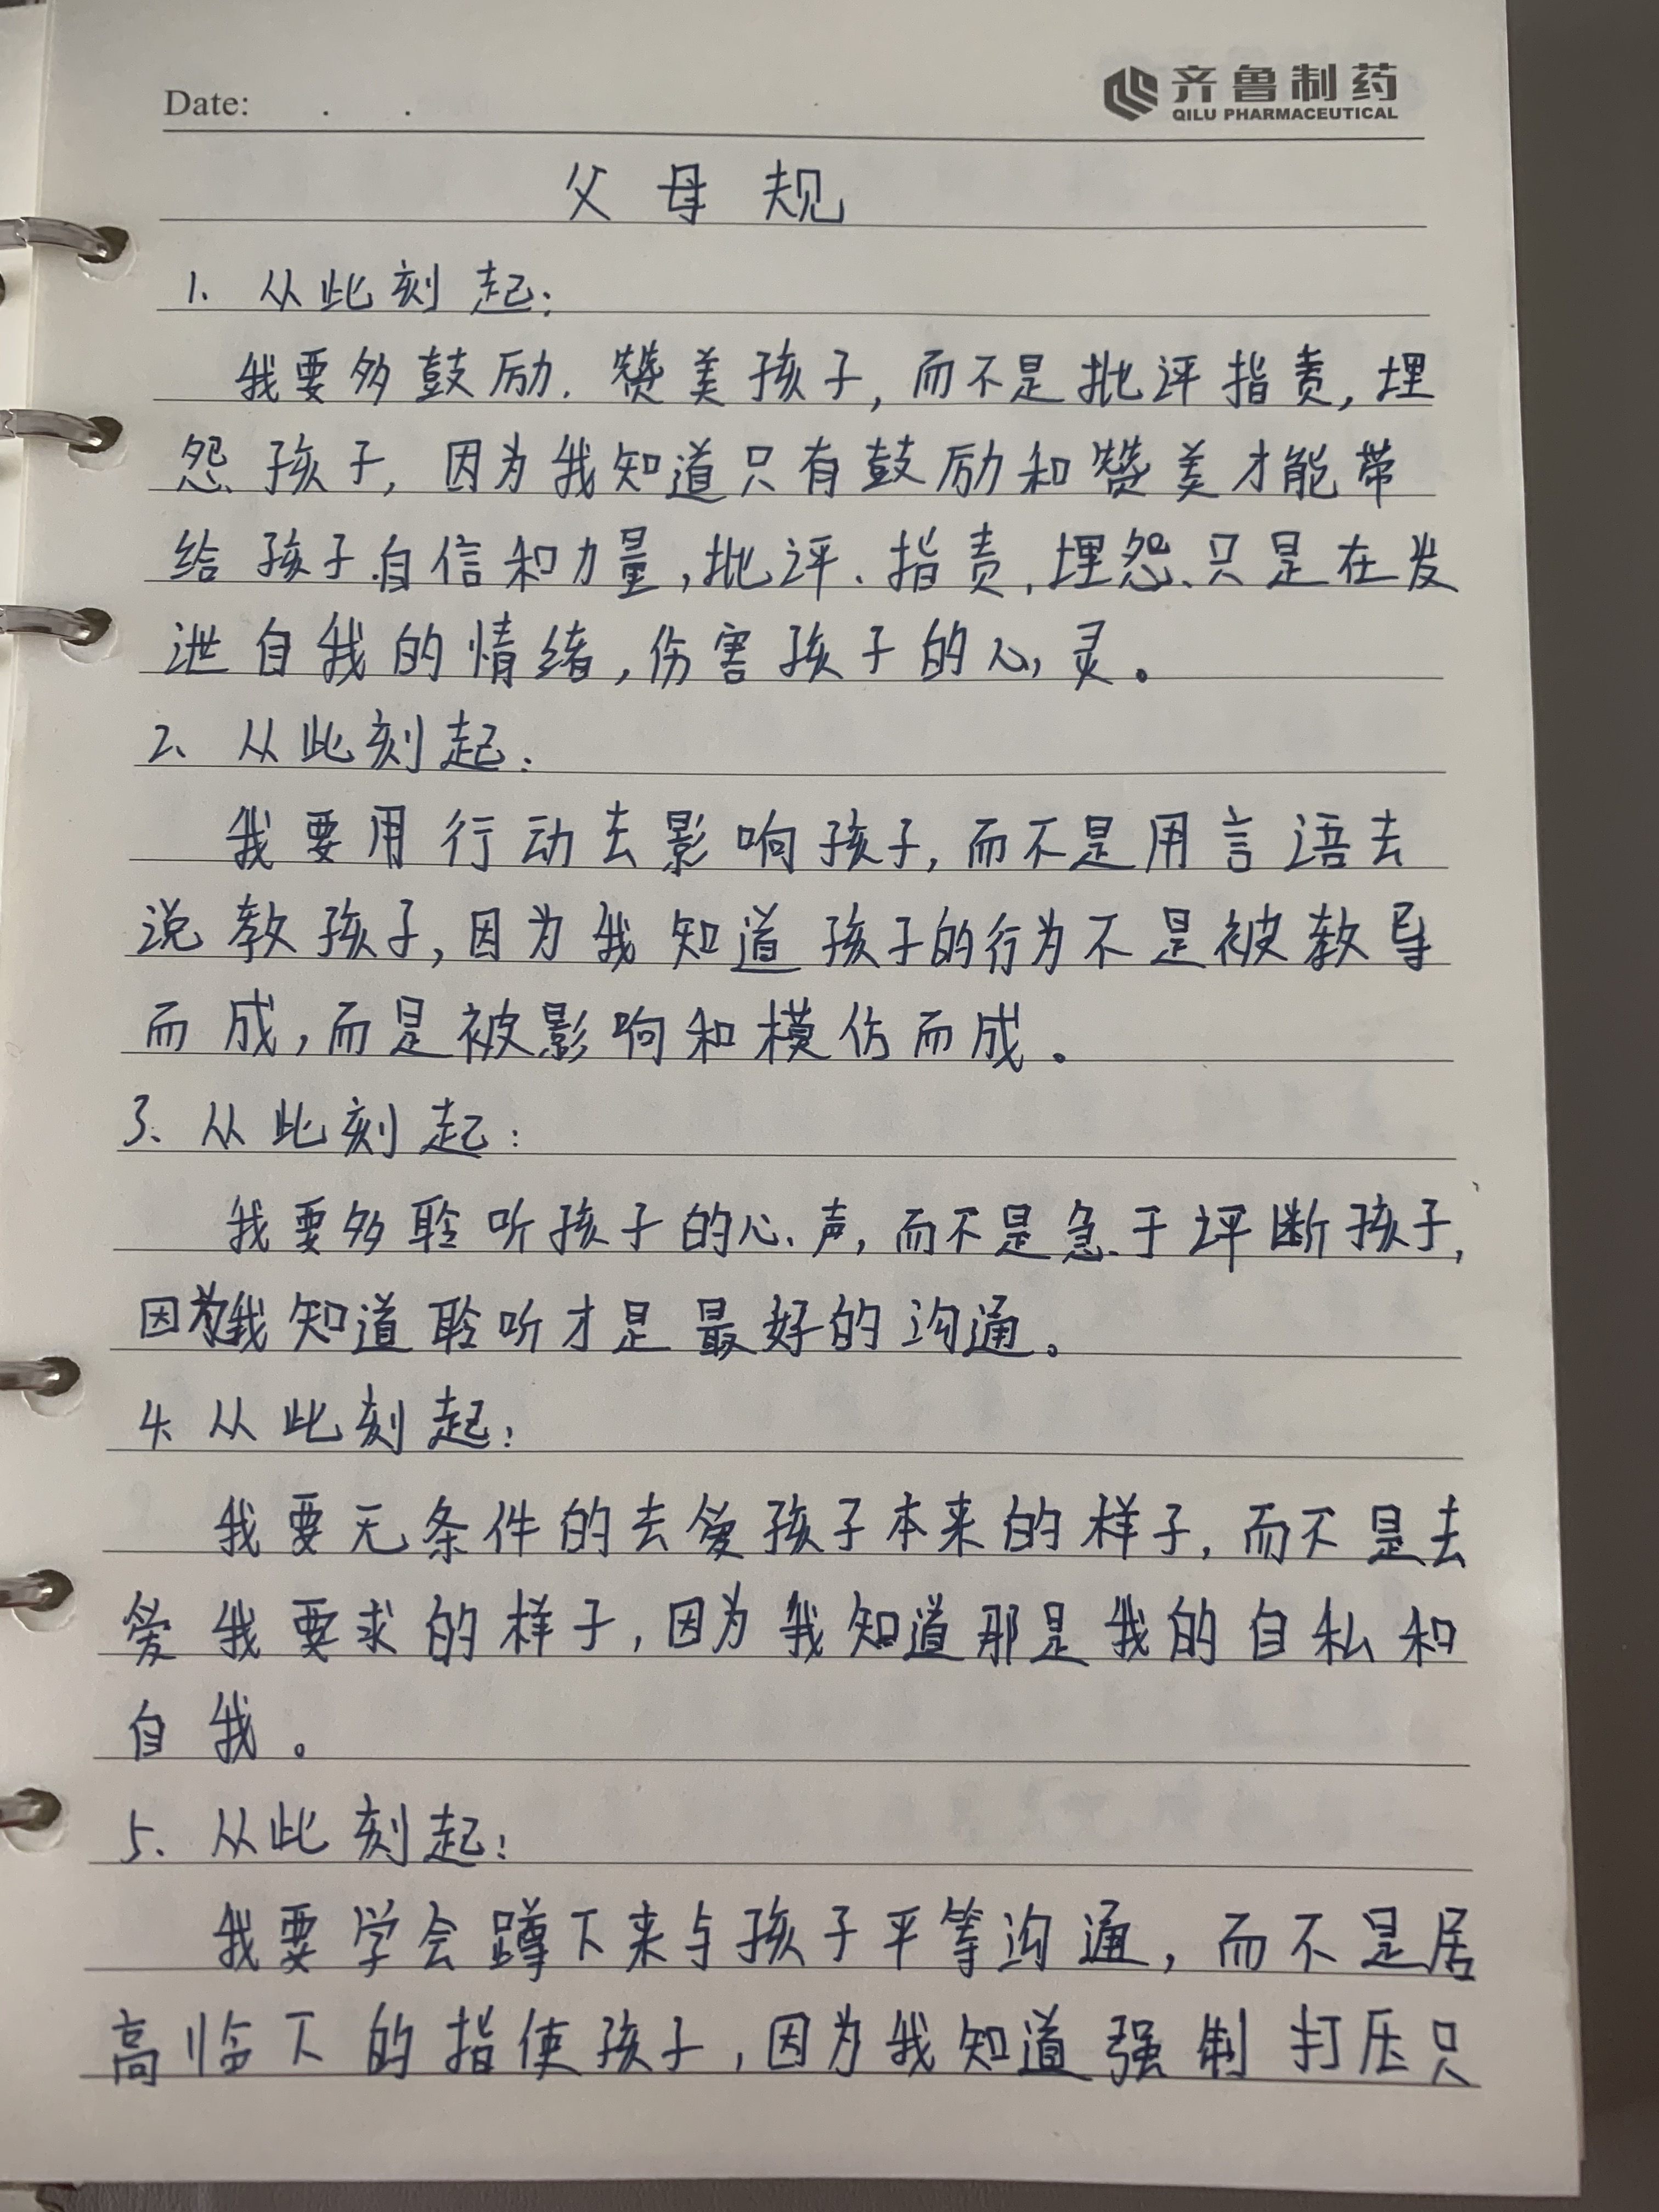 Date: . .
齐鲁制药
QILU PHARMACEUTICAL
父母规
1、从此刻起：
我要多鼓励、赞美孩子，而不是批评指责，埋
怨孩子，因为我知道只有鼓励和赞美才能带
给孩子自信和力量，批评、指责、埋怨、只是在发
泄自我的情绪，伤害孩子的心灵。
2、从此刻起：
我要用行动去影响孩子，而不是用言语去
说教孩子，因为我知道孩子的行为不是被教导
而成，而是被影响和模仿而成。
3、从此刻起：
我要多聆听孩子的心声，而不是急于评断孩子，
因为我知道聆听才是最好的沟通。
4、从此刻起：
我要无条件的去爱孩子本来的样子，而不是去
爱我要求的样子，因为我知道那是我的自私和
自我。
5、从此刻起：
我要学会蹲下来与孩子平等沟通，而不是居
高临下的指使孩子，因为我知道强制打压只